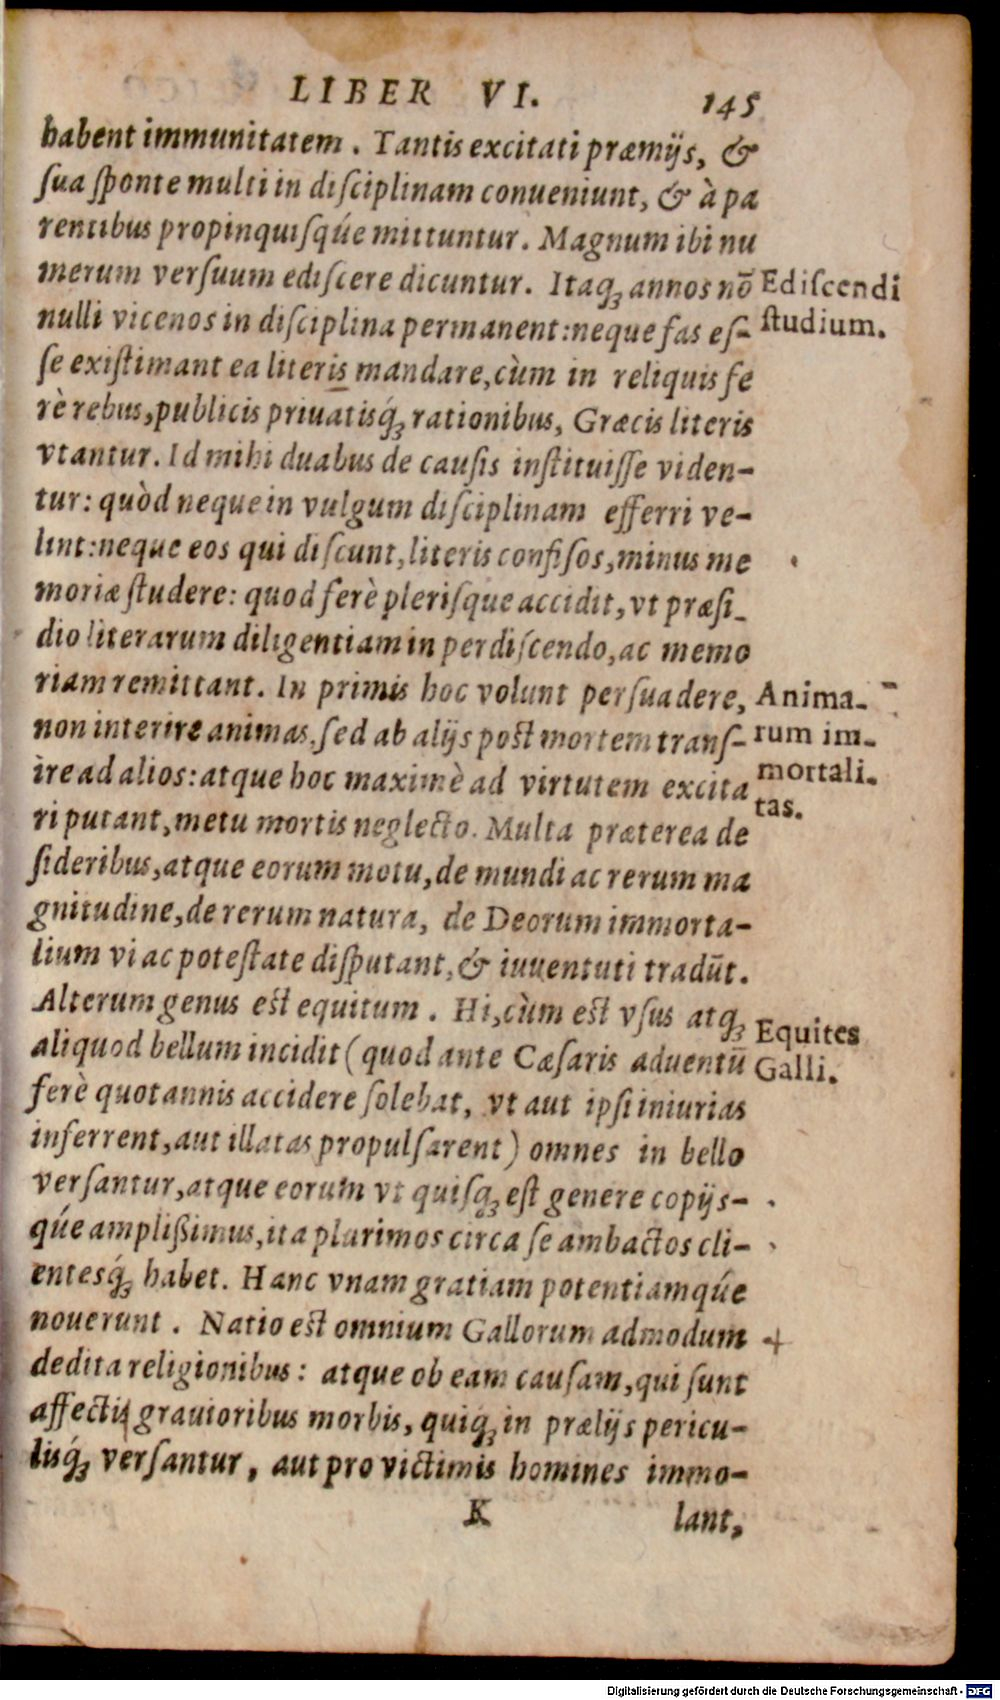 LIBER VI. 145
habent immunitatem. Tantis excitati præmijs, &
ſua ſponte multi in diſciplinam conueniunt, & à pa
rentibus propinquiſqúe mittuntur. Magnum ibi nu
merum verſuum ediſcere dicuntur. Itaqꝫ annos nō
Ediſcendi
nulli vicenos in diſciplina permanent: neque fas eſ-
ſtudium.
ſe exiſtimant ea literis mandare, cùm in reliquis fe
rè rebus, publicis priuatisq́ꝫ rationibus, Græcis literis
vtantur. Id mihi duabus de cauſis inſtituiſſe viden-
tur: quòd neque in vulgum diſciplinam efferri ve-
lint: neque eos qui diſcunt, literis confiſos, minus me
moriæ ſtudere: quod ferè pleriſque accidit, vt præſi-
dio literarum diligentiam in perdiſcendo, ac memo
riam remittant. In primis hoc volunt perſuadere,
Anima-
non interire animas, ſed ab alijs poſt mortem tranſ-
rum im-
ire ad alios: atque hoc maximè ad virtutem excita
mortali-
ri putant, metu mortis neglecto. Multa præterea de
tas.
ſideribus, atque eorum motu, de mundi ac rerum ma
gnitudine, de rerum natura, de Deorum immorta-
lium vi ac poteſtate diſputant, & iuuentuti tradūt.
Alterum genus eſt equitum. Hi, cùm eſt vſus atqꝫ
Equites
aliquod bellum incidit (quod ante Cæſaris aduentū
Galli.
ferè quotannis accidere ſolebat, vt aut ipſi iniurias
inferrent, aut illatas propulſarent) omnes in bello
verſantur, atque eorum vt quiſqꝫ eſt genere copijs-
qúe amplißimus, ita plurimos circa ſe ambactos cli-
entesq́ꝫ habet. Hanc vnam gratiam potentiamqúe
nouerunt. Natio eſt omnium Gallorum admodum
dedita religionibus: atque ob eam cauſam, qui ſunt
affecti grauioribus morbis, quiq́ꝫ in prælijs pericu-
lisq́ꝫ verſantur, aut pro victimis homines immo-
K lant,
Digitalisierung gefördert durch die Deutsche Forschungsgemeinschaft - DFG